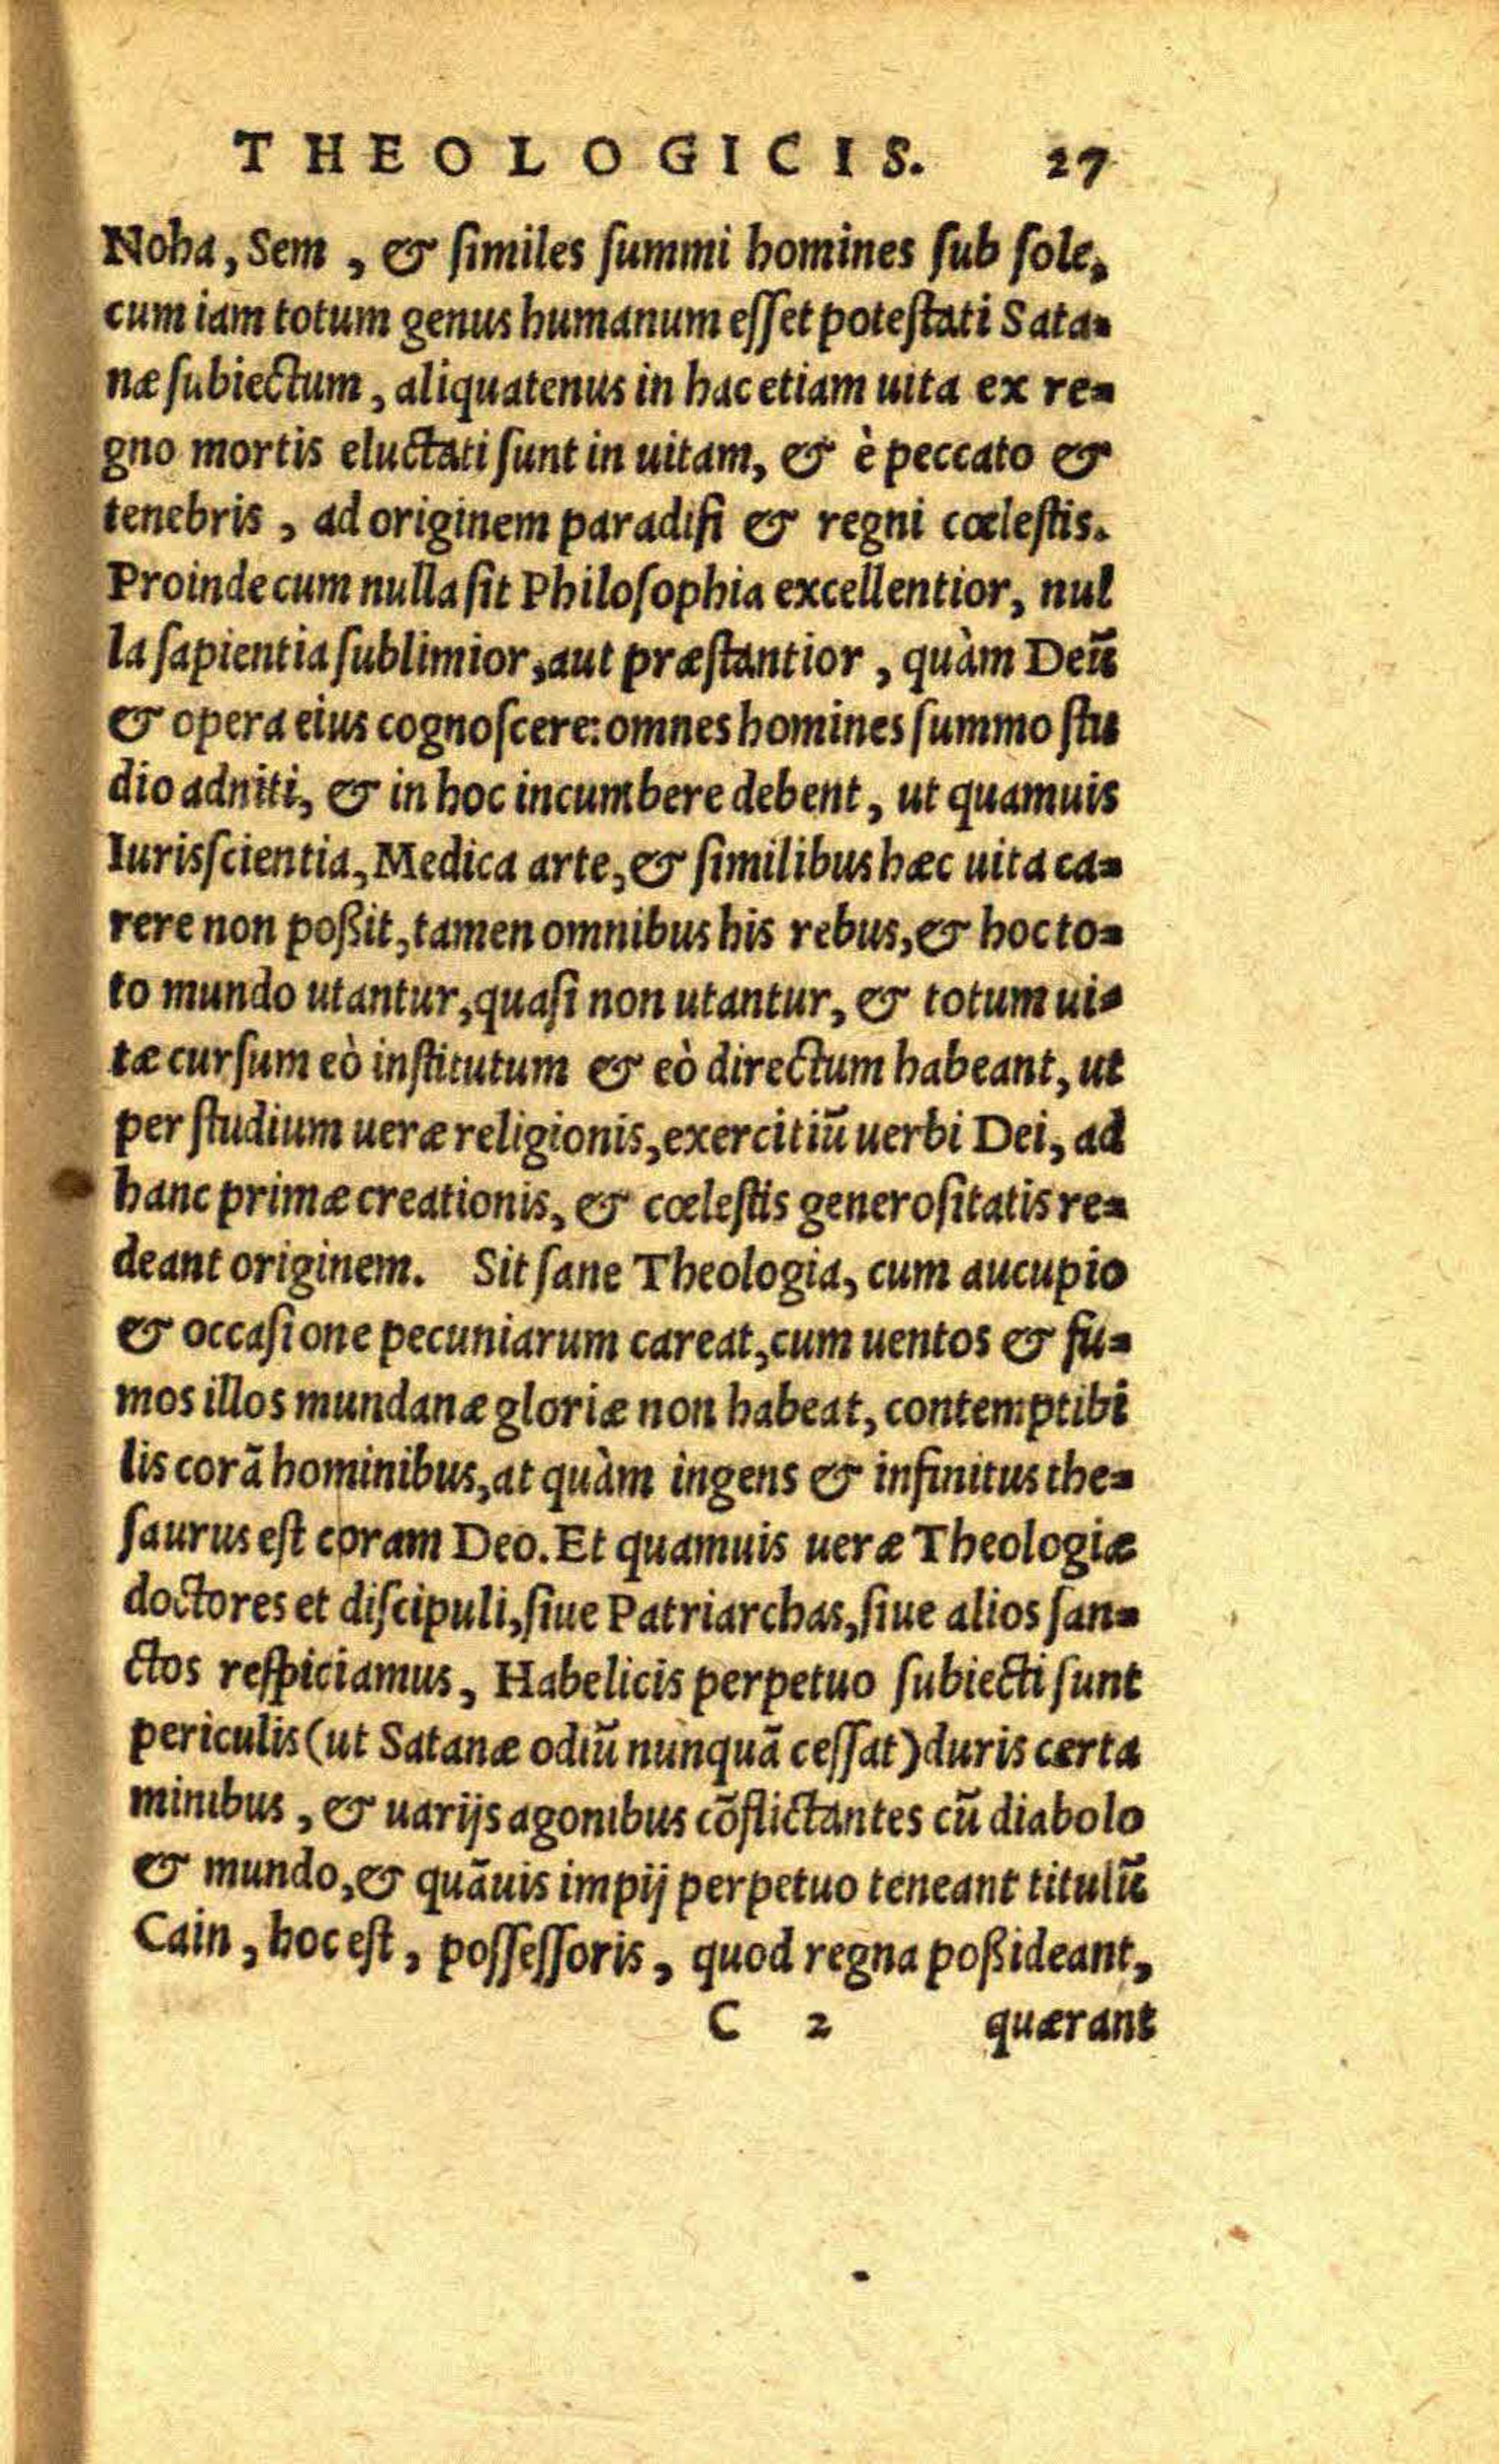 THEOLOGICIS. 27
Noha, Sem, & ſimiles ſummi homines ſub ſole,
cum iam totum genus humanum eſſet poteſtati Sata-
næ ſubiectum, aliquatenus in hac etiam uita ex re-
gno mortis eluctati ſunt in uitam, & è peccato &
tenebris, ad originem paradiſi & regni cœleſtis.
Proinde cum nulla ſit Philoſophia excellentior, nul
la ſapientia ſublimior, aut præſtantior, quàm Deũ
& opera eius cognoſcere: omnes homines ſummo ſtu
dio adniti, & in hoc incumbere debent, ut quamuis
Iurisſcientia, Medica arte, & ſimilibus hæc uita ca-
rere non poßit, tamen omnibus his rebus, & hoc to-
to mundo utantur, quaſi non utantur, & totum ui-
tæ curſum eò inſtitutum & eò directum habeant, ut
per ſtudium ueræ religionis, exercitiũ uerbi Dei, ad
hanc primæ creationis, & cœleſtis generoſitatis re-
deant originem. Sit ſane Theologia, cum aucupio
& occaſione pecuniarum careat, cum uentos & fu-
mos illos mundanæ gloriæ non habeat, contemptibi
lis corã hominibus, at quàm ingens & infinitus the-
ſaurus eſt coram Deo. Et quamuis ueræ Theologiæ
doctores et diſcipuli, ſiue Patriarchas, ſiue alios ſan-
ctos reſpiciamus, Habelicis perpetuo ſubiecti ſunt
periculis (ut Satanæ odiũ nunquã ceſſat) duris certa
minibus, & uarijs agonibus cõflictantes cũ diabolo
& mundo, & quãuis impij perpetuo teneant titulũ
Cain, hoc eſt, poſſeſſoris, quod regna poßideant,
C 2 quærant